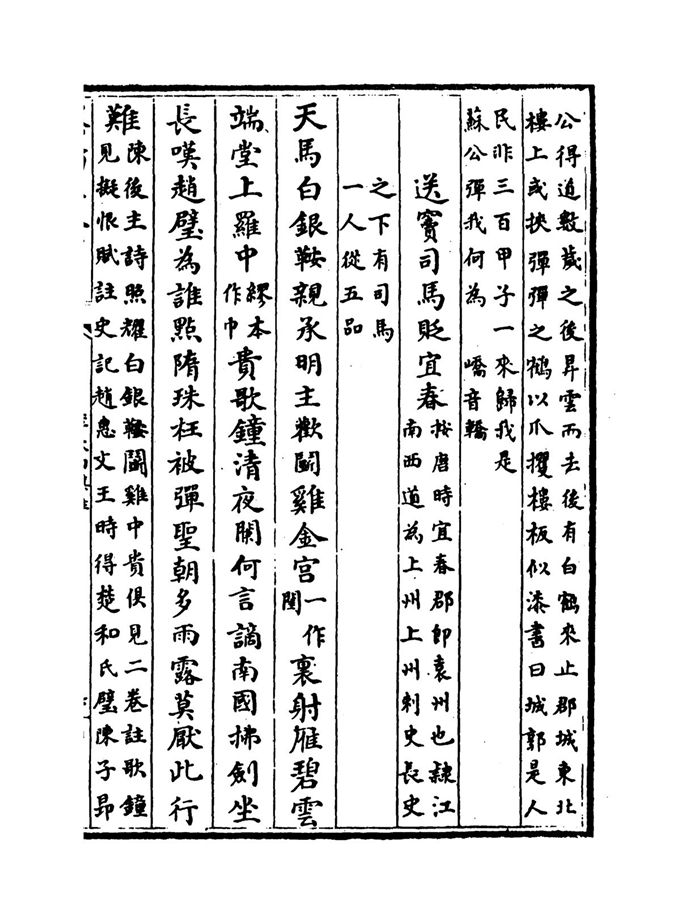 公得道數歲之後昇雲而去後有白鶴來止郡城東北
樓上或挾彈彈之鶴以爪攫樓板似漆書曰城郭是人
民非三百甲子一來歸我是
蘇公彈我何為　嶠音轎
送竇司馬貶宜春
按唐時宜春郡即袁州也隷江
南西道為上州上州刺史長史
之下有司馬
一人從五品
天馬白銀鞍親承明主歡鬬雞金宮
一作
閨
裏射雁碧雲
端堂上羅中
繆本
作巾
貴歌鐘清夜闌何言謫南國拂劍坐
長嘆趙璧為誰點隋珠枉被彈聖朝多雨露莫厭此行
難
陳後主詩照耀白銀鞍鬬雞中貴俱見二卷註歌鐘
見擬恨賦註史記趙惠文王時得楚和氏璧陳子昂